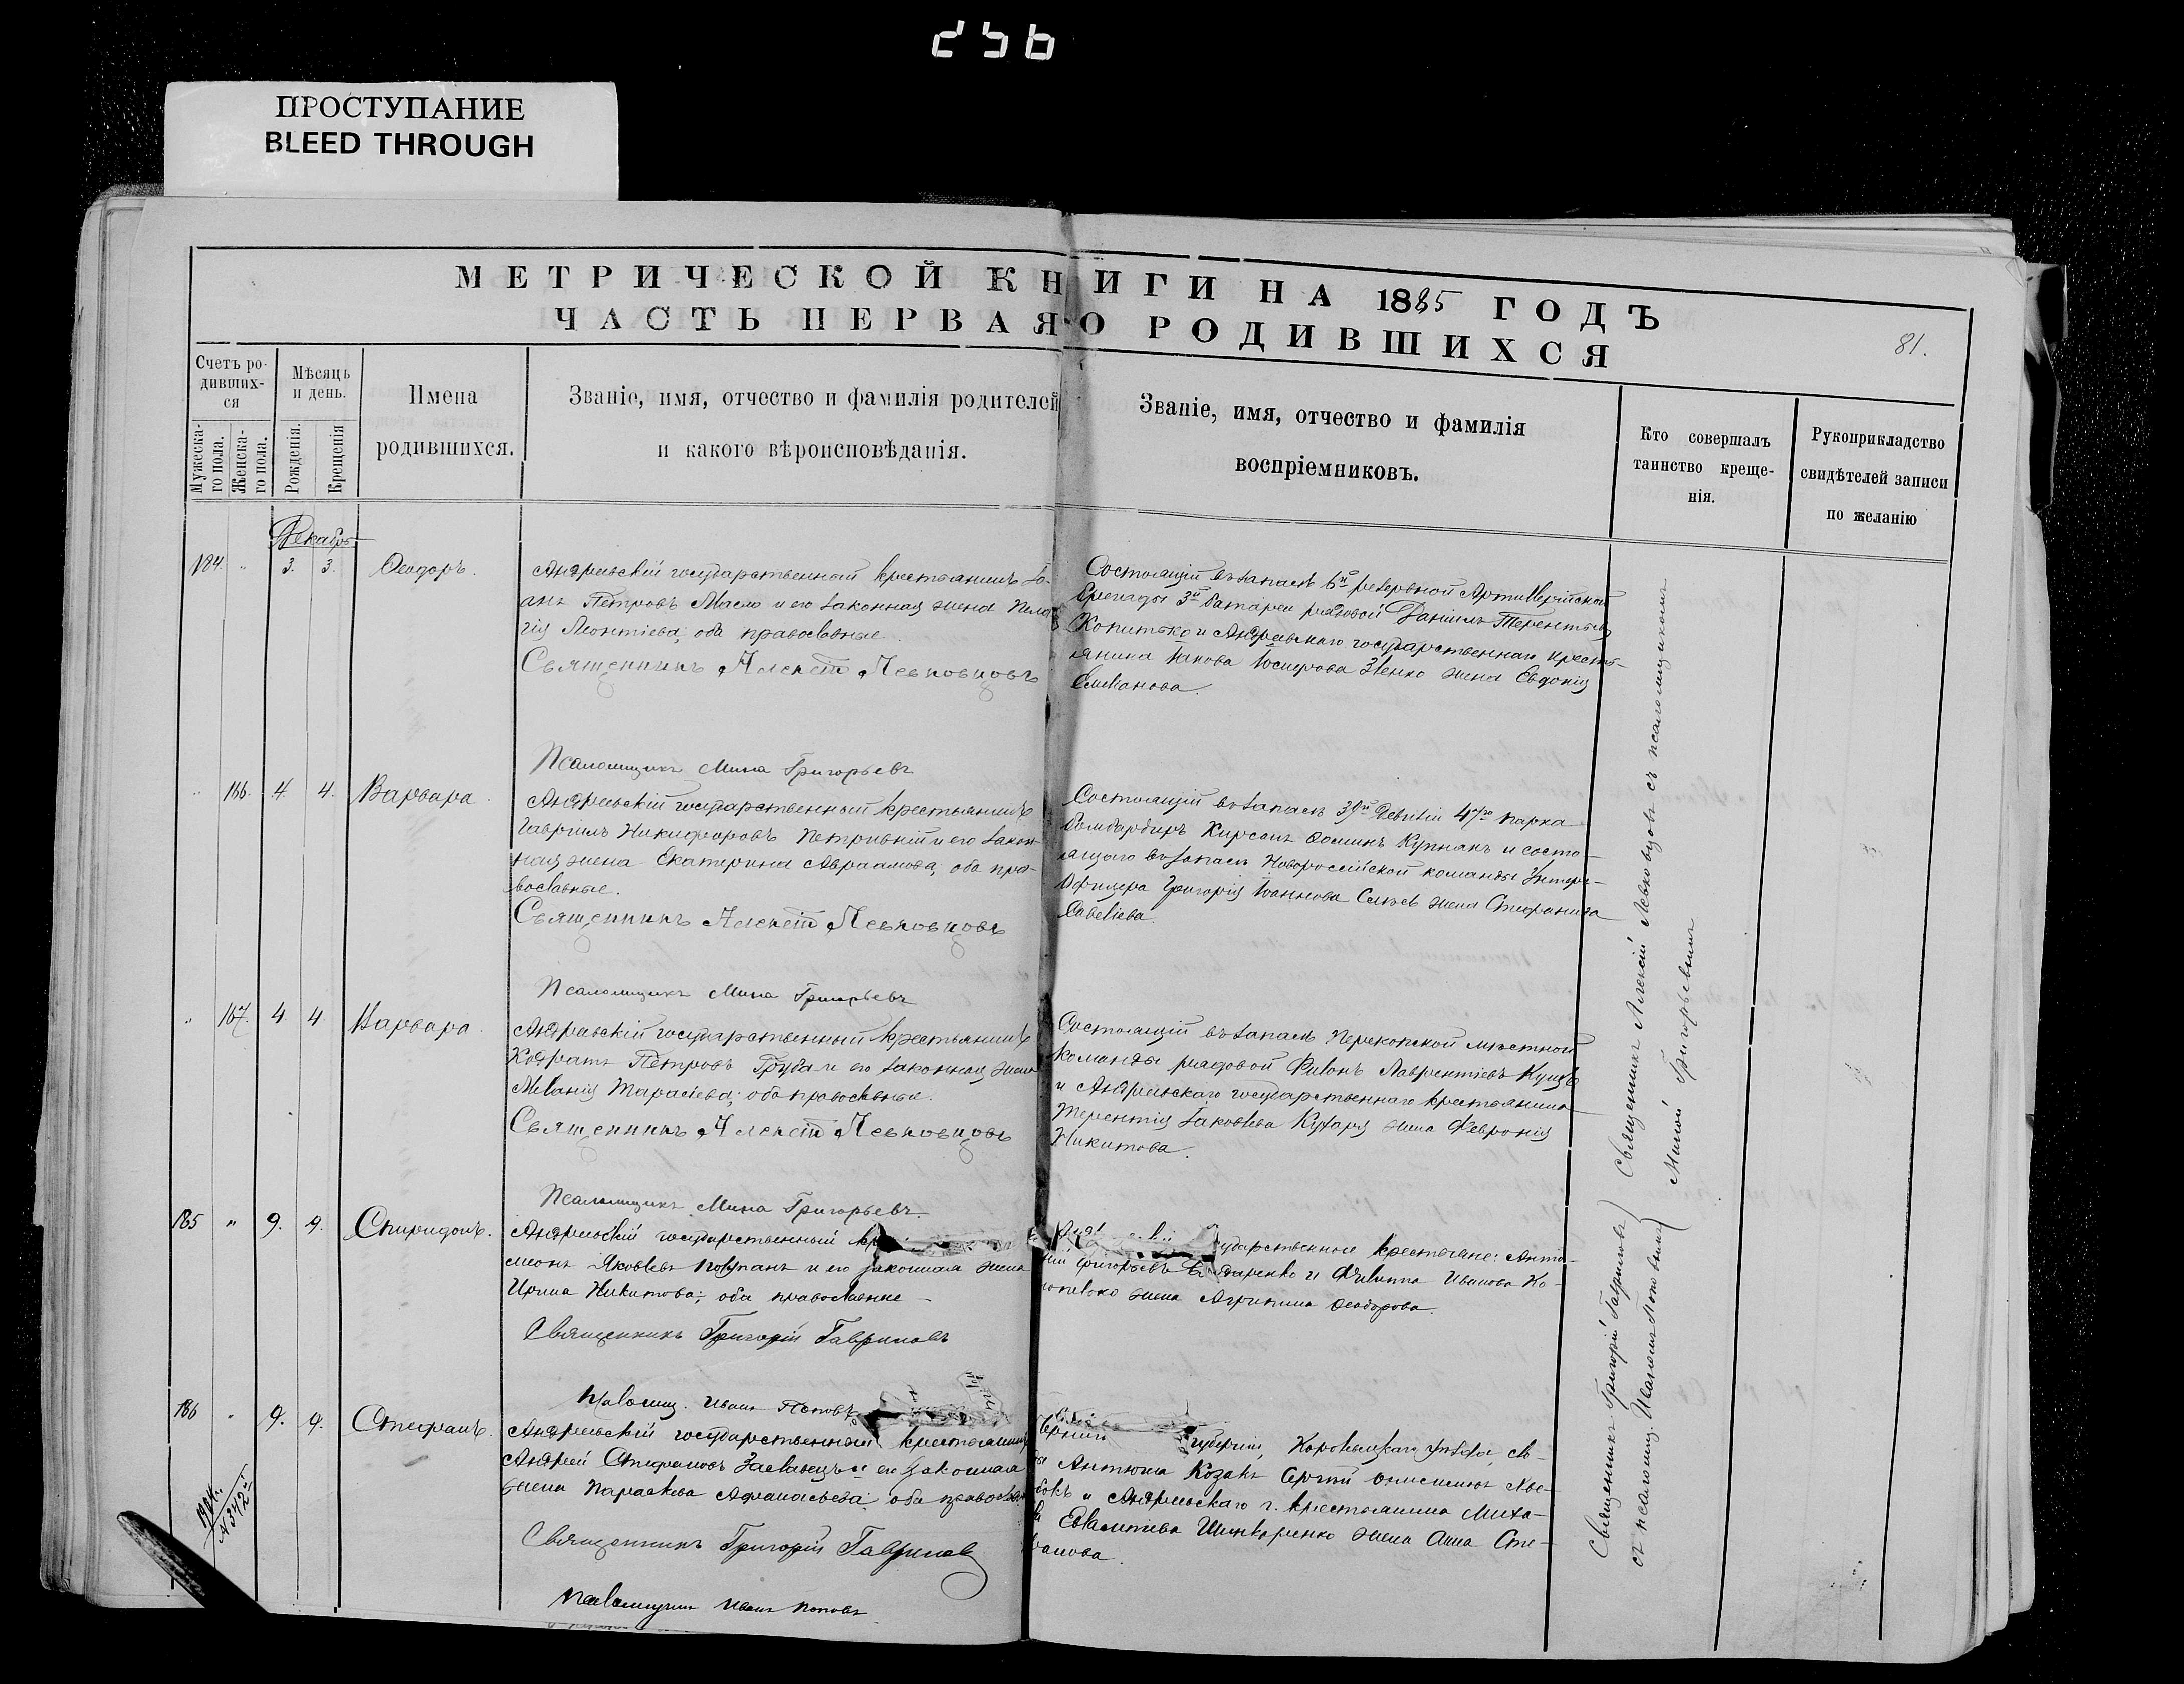 256
ПРОСТУПАНИЕ
BLEED THROUGH
МЕТРИЧЕСКОЙ КНИГИ НА 1885 ГОДЪ
ЧАСТЬ ПЕРВАЯ О РОДИВШИХСЯ
81.
Счетъ родившихся
Мужескаго пола.
Женскаго пола.
Мѣсяцъ и день.
Рожденія.
Крещенія
Имена
родившихся.
Званіе, имя, отчество и фамилія родителей
и какого вѣроисповѣданія.
Званіе, имя, отчество и фамилія
воспріемниковъ.
Кто совершалъ
таинство креще-
нія.
Рукоприкладство
свидѣтелей записи
по желанію
Декабрь
184. " 3. 3. Ѳеодоръ.
Андреевскій государственный крестьянинъ Іо-
анъ Петровъ Масло и его законная жена Пела
гія Леонтіева; оба православные
Священникъ Алексій Левковцовъ
Псаломщикъ Мина Григорьевъ
Состоящій въ запасѣ 6й резервной Артиллерійской
бригады 3й батареи рядовой Даніилъ Терентьевъ
Копитько и Андреевскаго государственнаго кресть-
янина Іакова Іосифова Зленко жена Евдокія
Семіонова.
" 166. 4. 4. Варвара.
Андреевскій государственный крестьянинъ
Гавріилъ Никифоровъ Петривній и его закон-
ная жена Екатерина Авраамова; оба пра-
вославные.
Священникъ Алексій Левковцовъ
Псаломщикъ Мина Григорьевъ
Состоящій въ запасѣ 39й Дивизіи 47го парка
бомбардиръ Хирсанъ Ѳоминъ Купнякъ и состо-
ящаго въ запасѣ Новороссійской команды Унтеръ-
Офицера Григорія Іоаннова жена Стефанида
Савеліева.
" 167. 4. 4. Варвара.
Андреевскій государственный крестьянинъ
Кодратъ Петровъ Груба и его законная жена
Меланія Тарасіева; оба православные.
Священникъ Алексій Левковцовъ
Псаломщикъ Мина Григорьевъ
Состоящій въ запасѣ Перекопской мѣстной
команды рядовой Филонъ Лаврентіевъ Куцъ
и Андреевскаго государственнаго крестьянина
Терентія Іаковлева Кухаря жена Февронія
Никитова.
185 " 9. 9. Спиридонъ.
Андреевскій государственный
меонъ Яковлевъ и его законная жена
Ирина Никитова; оба православные
Священникъ Григорій Гавриловъ
Псаломщ. Иванъ Поповъ
ударственные крестьяне: Анто-
ній Григорьевъ и Филиппа Иванова Ко-
жена Агрипина Ѳеодорова.
186 " 9. 9. Стефанъ.
Андреевскій государственный крестьянинъ
Андрей Стефановъ Заславецъ и его законная
жена Параскева Афанасьева; оба православн
Священникъ Григорій Гавриловъ
Псаломщикъ Иванъ Поповъ
губерніи, уѣзда, св-
Антюша Козакъ Сергій Онисимовъ
и Андреевскаго г. крестьянина Миха-
Шинкаренко жена Анна Сте-
фанова.
Священникъ Алексій Левковцовъ съ псаломщикомъ
Миной Григорьевымъ
Священникъ Григорій Гавриловъ
съ псаломщ. Иваномъ Поповымъ
1904.
№ 342